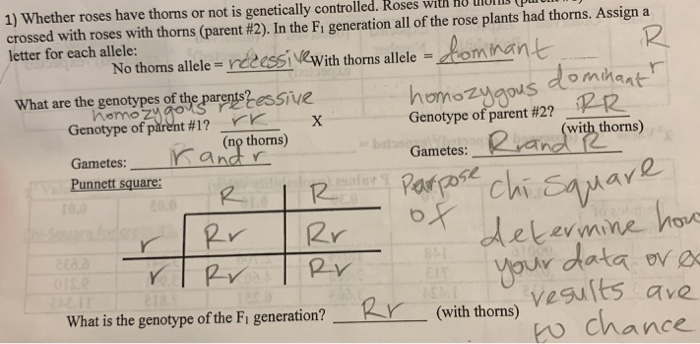 1) Whether roses have thorns or not is genetically controlled. Roses with no thorns
crossed with roses with thorns (parent #2). In the F1 generation all of the rose plants had thorns. Assign a
letter for each allele: R
No thorns allele = recessive With thorns allele = dominant r
What are the genotypes of the parents?
homozygous recessive homozygous dominant
Genotype of parent #1? rr X Genotype of parent #2? RR
(no thorns) (with thorns)
Gametes: r and r Gametes: R and R
Punnett square:
R R
r Rr Rr
r Rr Rr
Purpose of chi square
determine how
your data or
results are
to chance
What is the genotype of the F1 generation? Rr (with thorns)